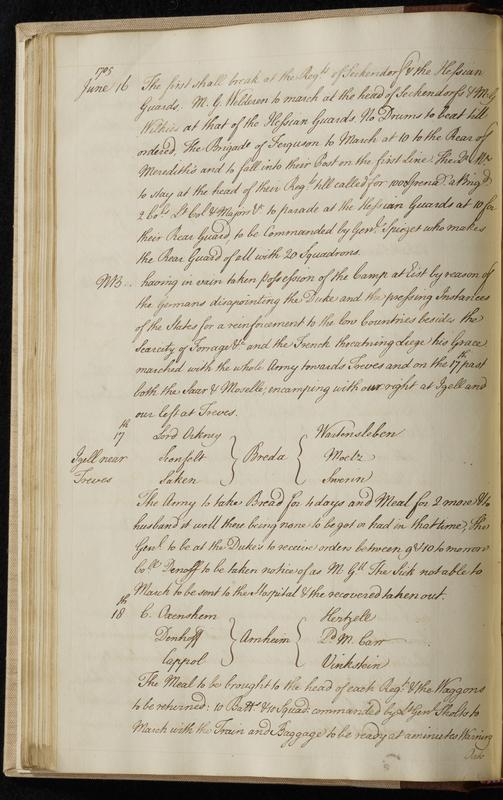 1705
June 16 The first shall break at the Regts. of Seckendorf & the Hessian
Guards. M. G. Welderen to march at the head of Seckendorfs & M. G.
Wilkes at that of the Hessian Guards. No Drums to beat till
ordered, The Brigade of Ferguson to March at 10 to the Rear of
Merediths and to fall into their Post on the first line. The
to stay at the head of their Regts. till called for 1000 Grend. a Brigd.
2 Cols. Lt. Col. & Majors &c. to parade at the Hessian Guards at 10 for
their Rear Guard to be Commanded by Genl. Spieget who makes
the Rear Guard of all with 20 Squadrons.
NB.. having in vain taken possession of the Camp at Elst by reason of
the Germans disapointing the Duke and the pressing Instances
of the States for a reinforcement to the low Countries besides the
Scarcity of Forrage &c. and the French threatning Liege his Grace
marched with the whole Army towards Treves and on the 17th. past
both the Saar & Moselle, encamping with our right at Igell and
our left at Treves.
17th Lord Orkney Wartensleben
Igell near Sconfelt Breda Moetz
Treves Saken Swenn
The Army to take Bread for 4 days and Meal for 2 more & to
husband it well there being none to be got or had in that time, The
Genls. to be at the Dukes to receive orders between 9 & 10 to morrow
Coll. Denoff to be taken notice of as M. Gll. The Sick not able to
March to be sent to the Hospital & the recovered taken out.
18th C. Oxenshern Hentzell
Denhoff Arnheim Pd. M. Carr
Cappol Vinkstein
The Meal to be brought to the head of each Regt. & the Waggons
to be returned: 10 Batts. & 10 Squad: commanded by Lt. Genl. Sholts to
March with the Train and Baggage to be ready at a minutes Warning